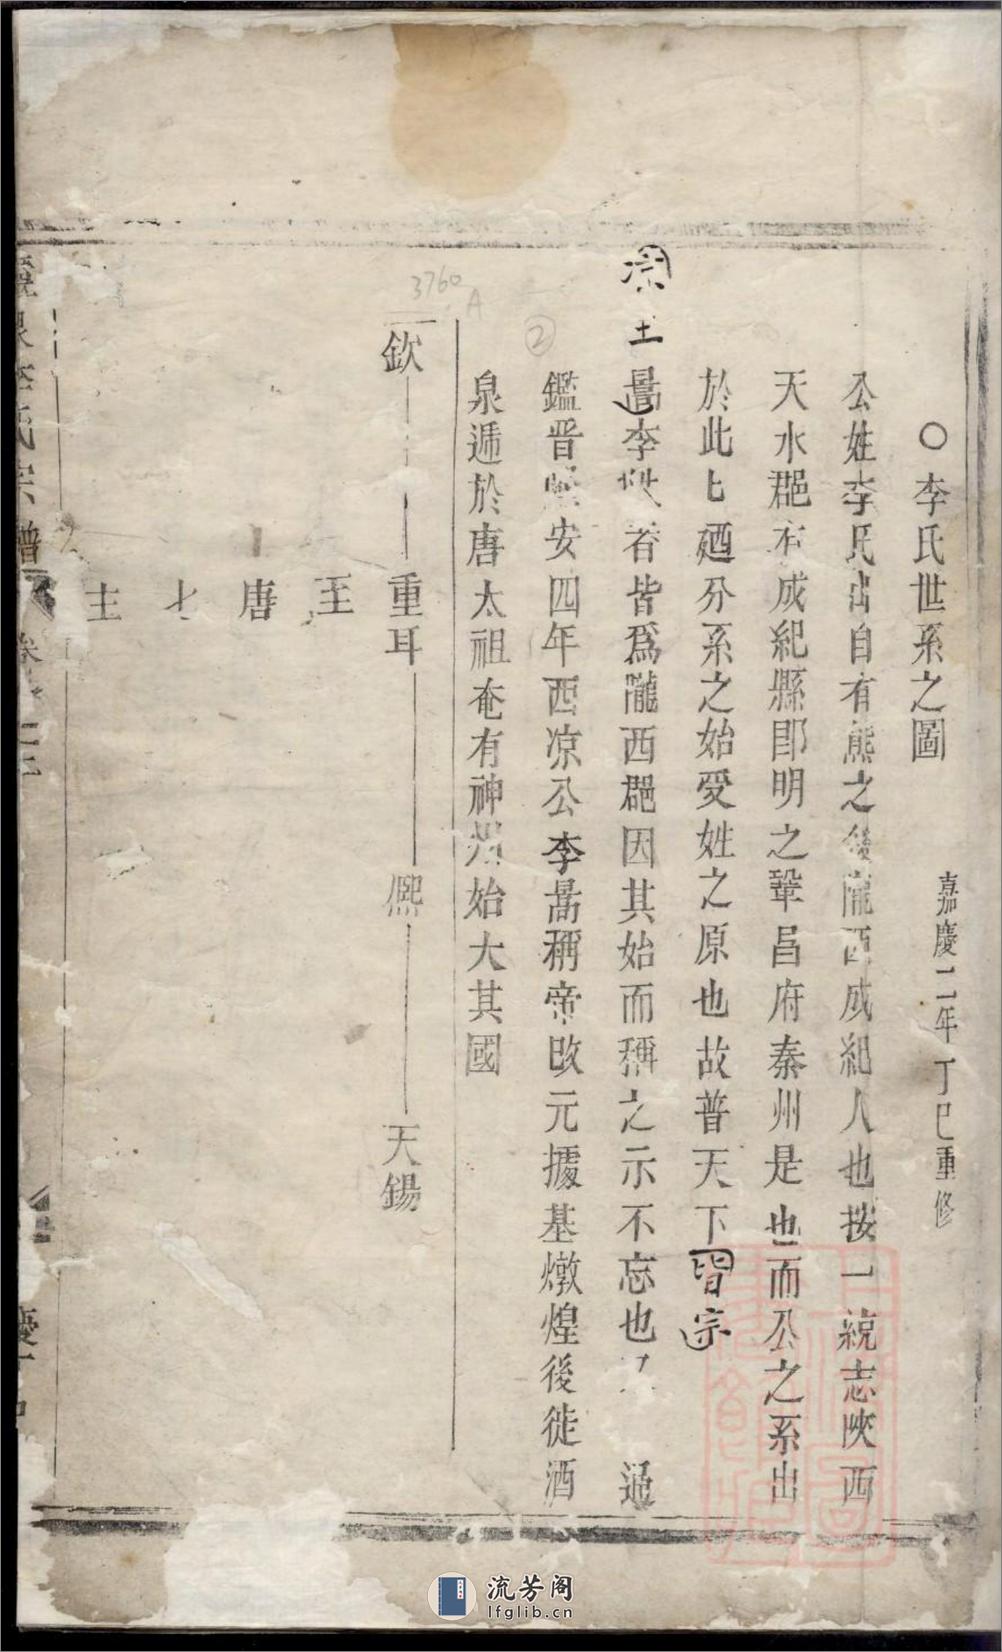 ○李氏世系之圖
嘉慶二年丁巳重修
公姓李氏出自有熊之後隴西成紀人也按一統志陜西
天水郡有成紀縣即明之鞏昌府秦州是也而公之系出
於此七廼分系之始受姓之原也故普天下皆宗
宗主
暠李姓者皆爲隴西郡因其始而稱之示不忘也 通
鑑晉隆安四年西凉公李暠稱帝改元據基燉煌後徙酒
泉遁於唐太祖奄有神州始大其國
②
3760
A
歆 重耳 熙 天錫
王
唐
七
主
李氏宗譜 卷
慶
流芳阁
lfglib.cn